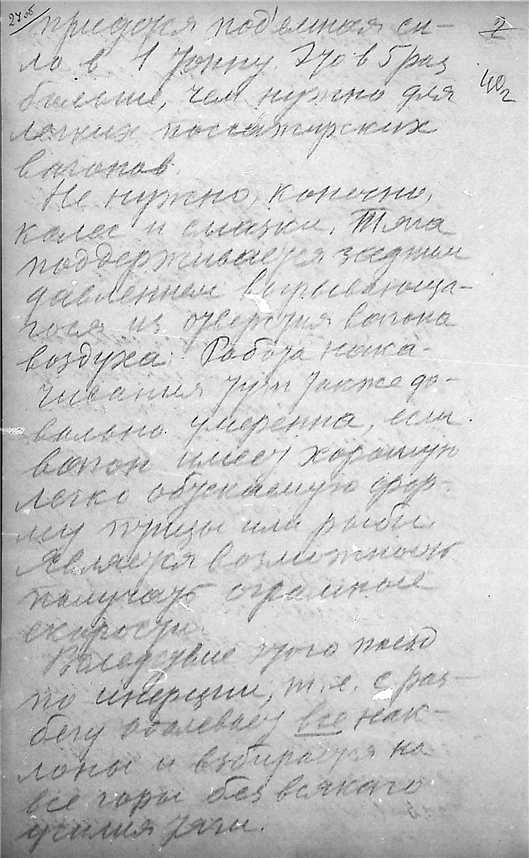 27об
2
40г
придется под'емная си-
ла в 1 тонну. Это в 5 раз
больше, чем нужно для
легких пассажирских
вагонов.
Не нужно, конечно,
колес и смазки. Тяга
поддерживается задним
давлением вырывающа-
гося из отверстия вагона
воздуха. Работа нака-
чивания тут также до-
вольно умеренна, если
вагон имеет хорошую
легко обтекаемую фор-
му птицы или рыбы.
Является возможность
получать огромные
скорости.
Вследствие этого поезд
по инерции, т.е. с раз-
бегу одолевает все нак-
лоны и взбирается на
все горы без всякаго
усилия тяги.